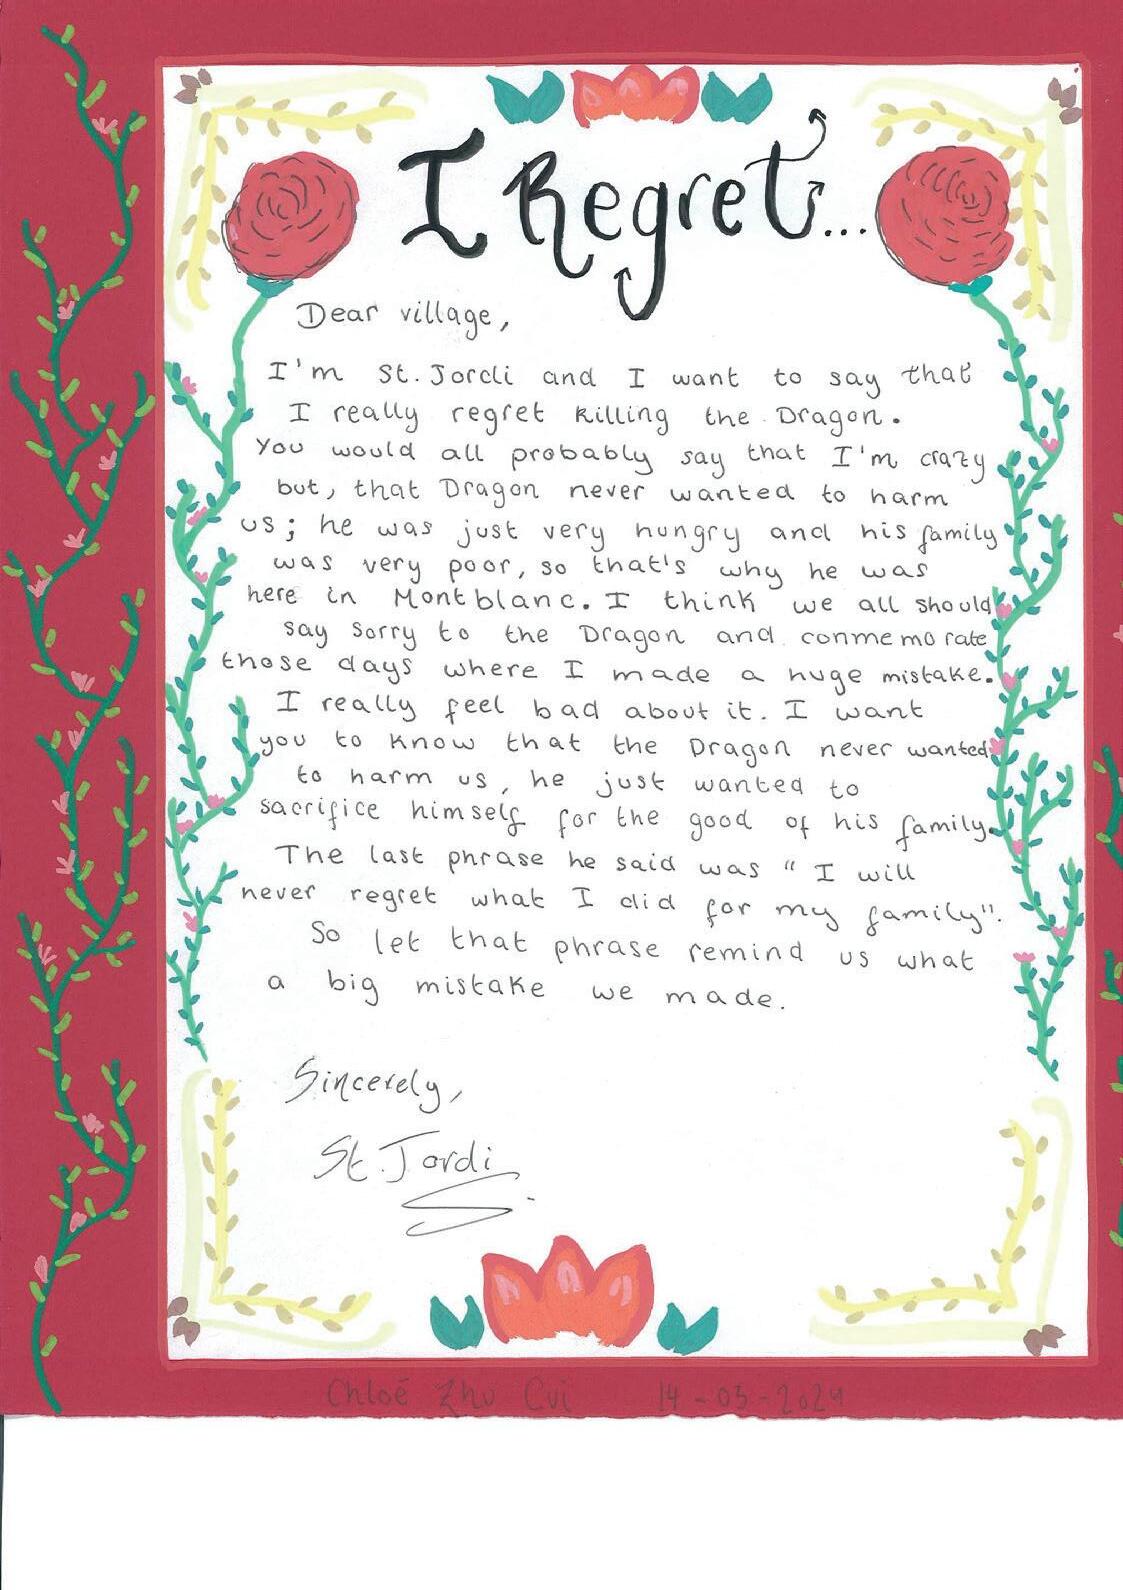 I Regret...
Dear village,
I'm St. Jordi and I want to say that
I really regret killing the Dragon.
You would all probably say that I'm crazy
but, that Dragon never wanted to harm
us; he was just very hungry and his family
was very poor, so that's why he was
here in Montblanc. I think we all should
say sorry to the Dragon and conmemorate
those days where I made a huge mistake.
I really feel bad about it. I want
you to know that the Dragon never wanted
to harm us, he just wanted to
sacrifice himself for the good of his family.
The last phrase he said was " I will
never regret what I did for my family".
So let that phrase remind us what
a big mistake we made.
Sincerely,
St. Jordi
Chloé Zhu Cui 14-03-2024